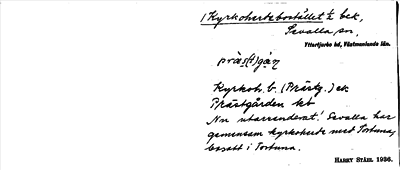 1 Kyrkoherdebostället ½ bek,
Sevalla sn.
Yttertjurbo hd, Västmanlands län.
präs(t)gán
Kyrkoh. b. (Prästg.) ek
Prästgården kb
Nu utarrenderat. Sevalla har
gemensam kyrkoherde med Tortuna,
bosatt i Tortuna.
HARRY STÅHL 1936.